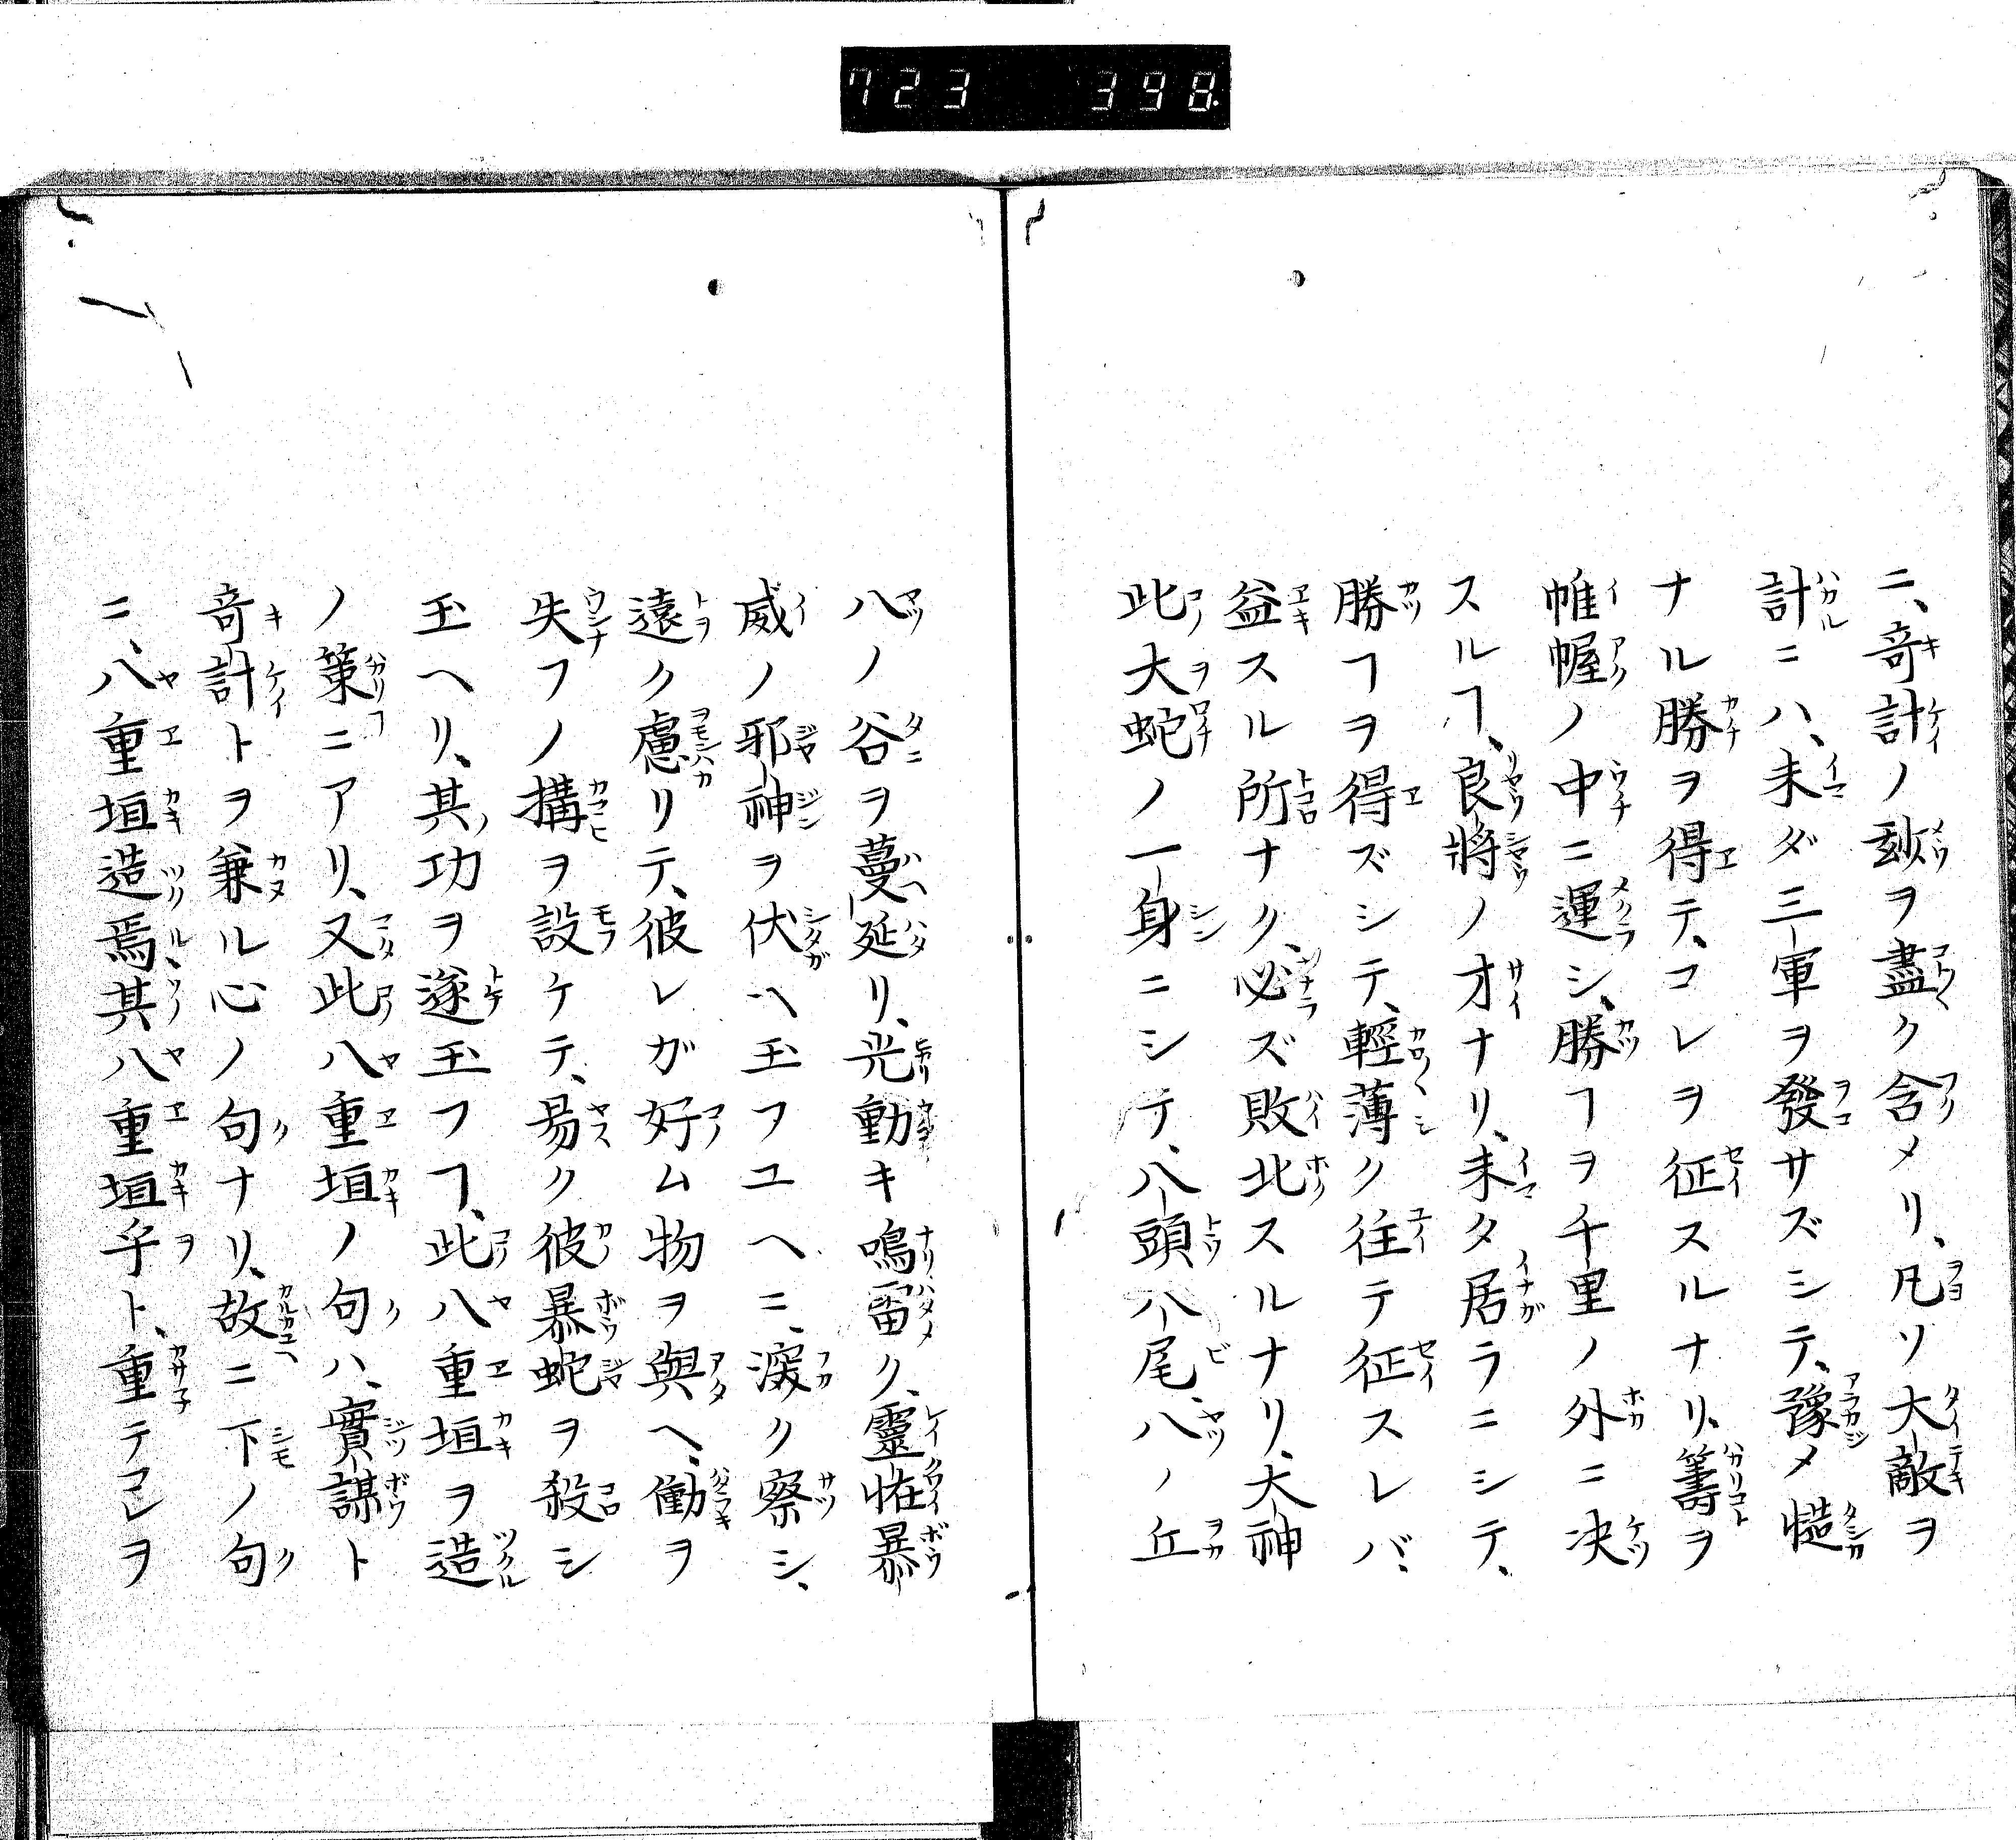 723 398
ニ、奇計ノ玅ヲ盡ク含メリ、凡ソ大敵ヲ
計ニハ、未ダ三軍ヲ發サズシテ、豫メ慥
ナル勝ヲ得テ、コレヲ征スルナリ、籌ヲ
帷幄ノ中ニ運シ、勝ヿヲ千里ノ外ニ決
スルヿ、良將ノ才ナリ、未タ居ラニシテ、
勝ヿヲ得ズシテ、輕薄ク往テ征スレバ、
益スル所ナク、必ズ敗北スルナリ、大神
此大蛇ノ一身ニシテ、八頭八尾、八ノ丘
八ノ谷ヲ蔓延リ、光動キ鳴雷ク、靈恠暴
威ノ邪神ヲ伏ヘ玉フユヘニ、深ク察シ、
遠ク慮リテ、彼レガ好ム物ヲ與ヘ、働ヲ
失フノ搆ヲ設ケテ、易ク彼暴蛇ヲ殺シ
玉ヘリ、其ノ功ヲ遂玉フヿ、此八重垣ヲ造
ノ策ニアリ、又此八重垣ノ句ハ、實謀ト
奇計トヲ兼ル心ノ句ナリ、故ニ下ノ句
ニ、八重垣造焉其八重垣乎ト、重テコレヲ